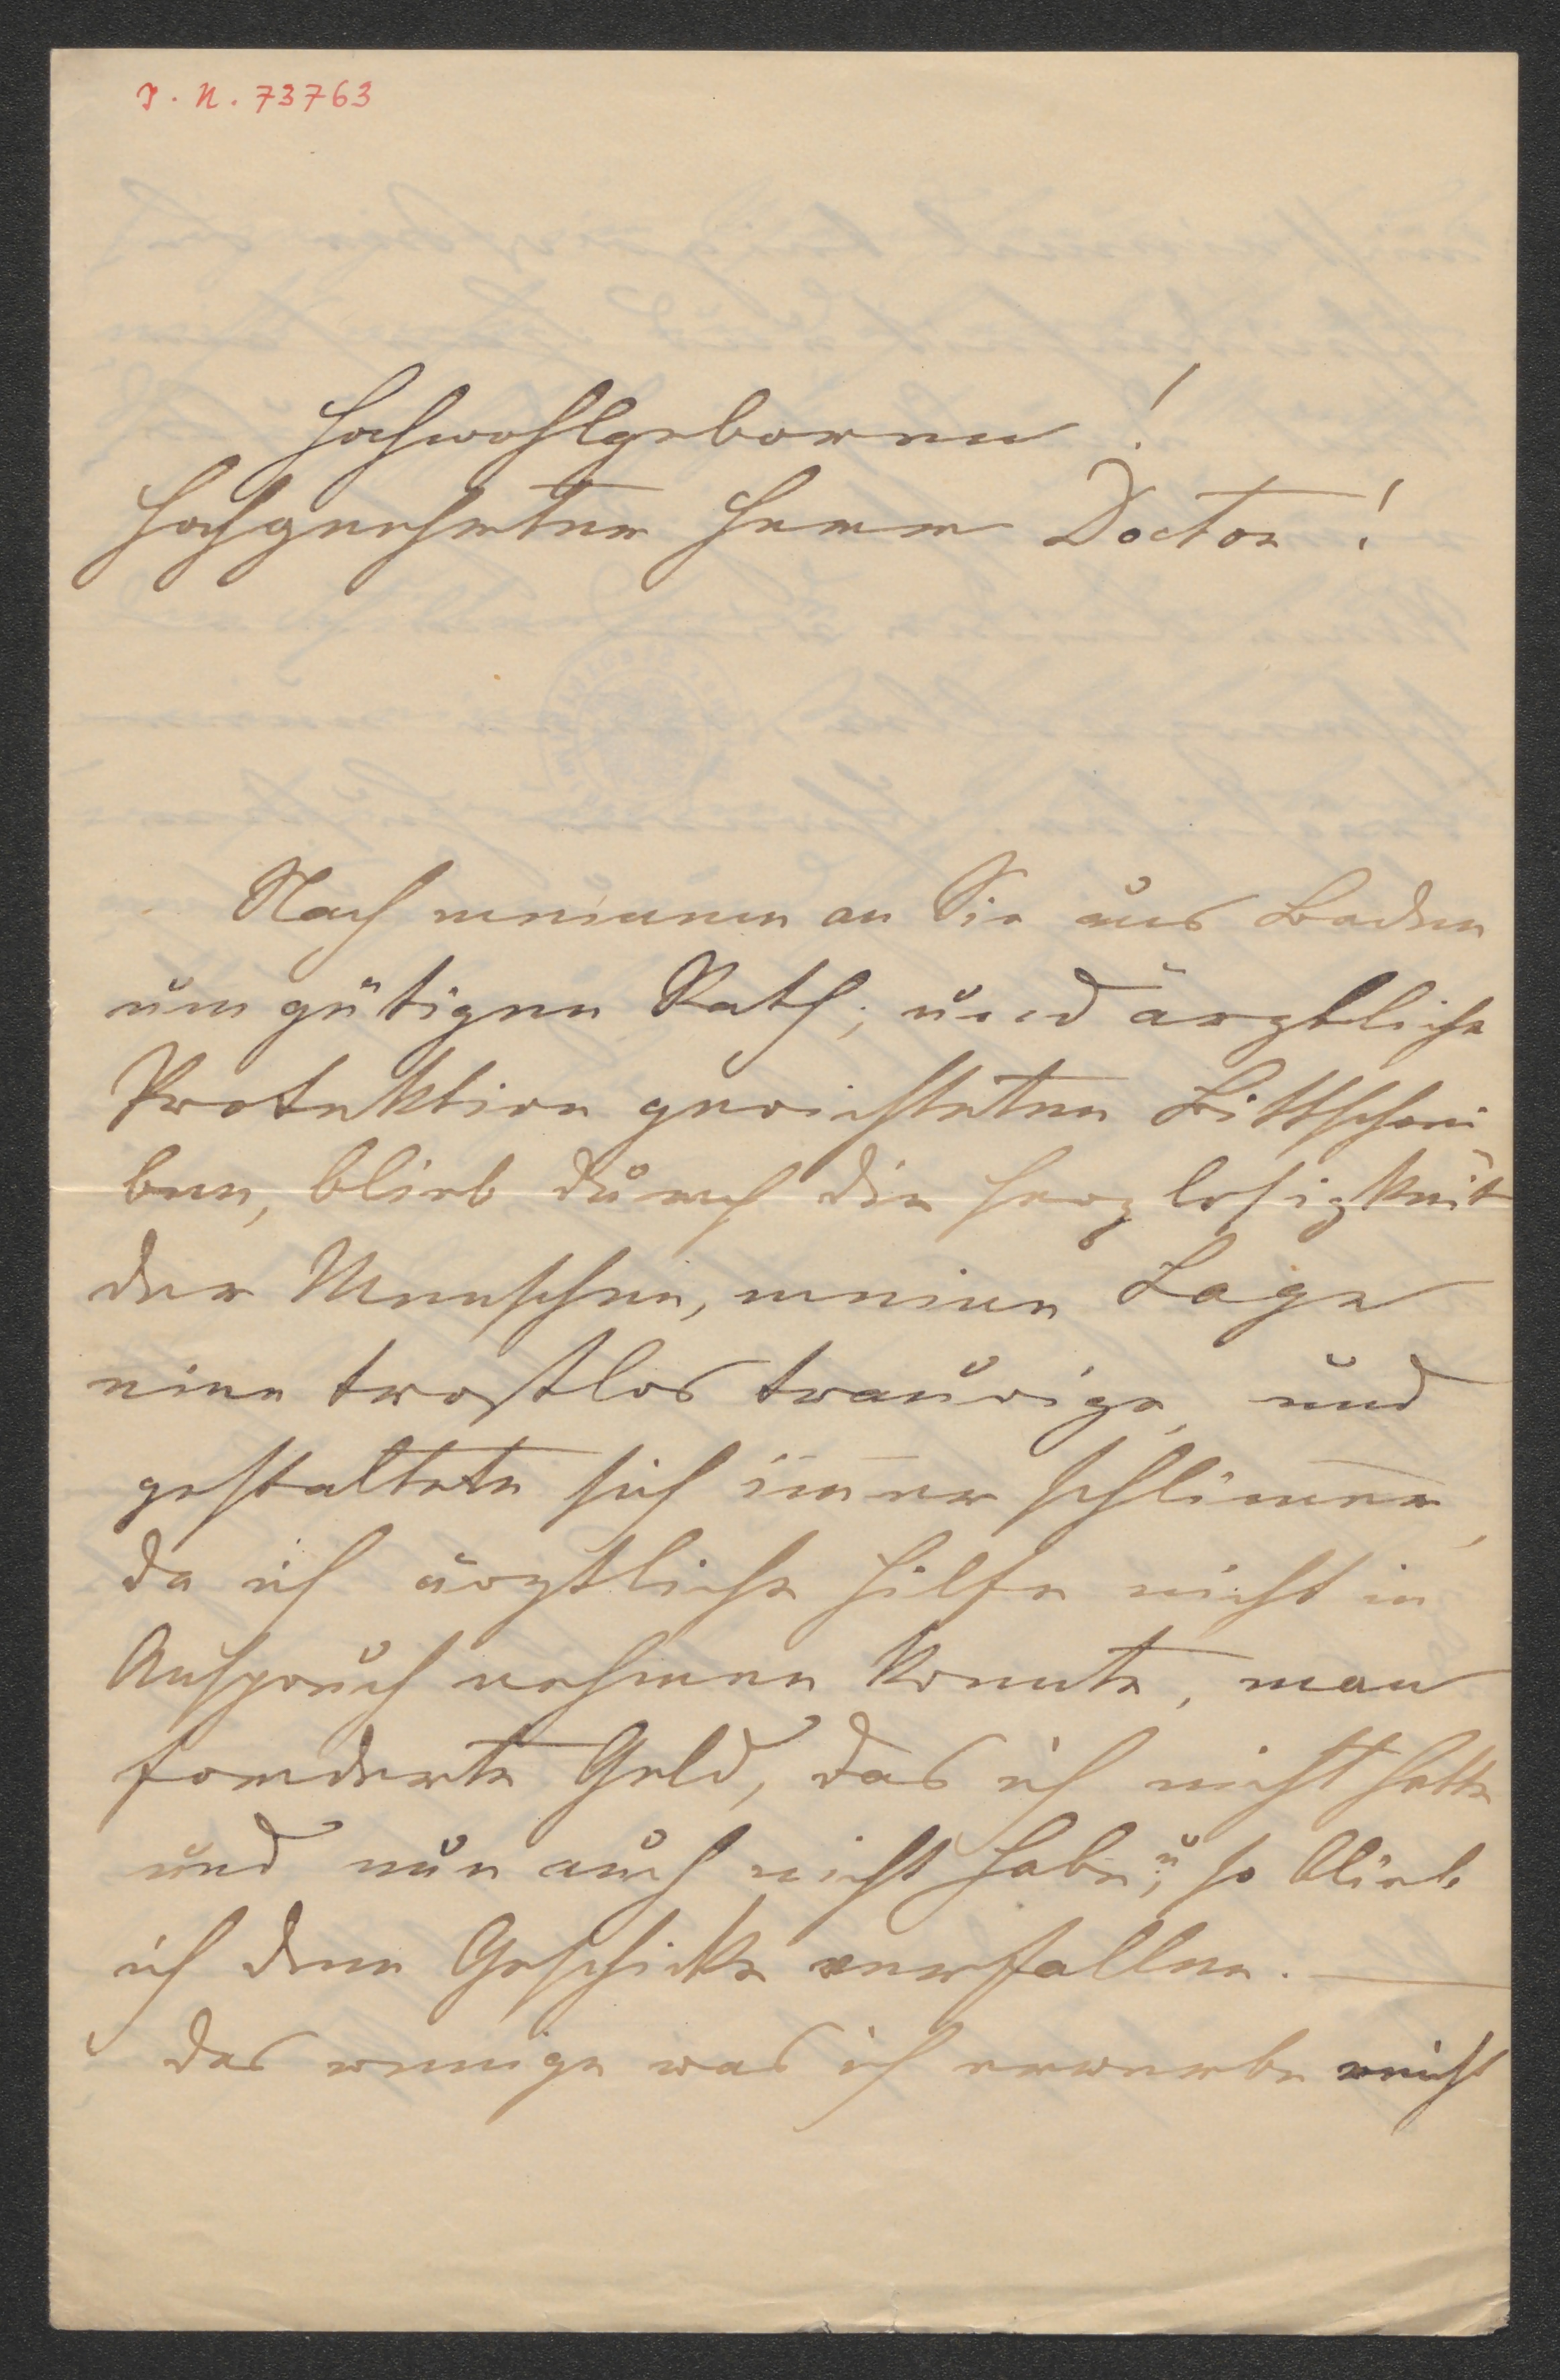 J. N. 73763
Hochwohlgeboren!
Hochgeehrter Herr Doctor!
Nach meinem an Sie aus Baden
um gütigen Rath; und ärztliche
Protektion gerichteten Bittschrei
ben, blieb durch die Herzlosigkeit
der Menschen, meine Lage
eine trostlos traurige, und
gestaltete sich im̅er schlim̅er,
da ich ärztliche Hilfe nicht in
Anspruch nehmen konnte, man
forderte Geld, das ich nicht hatte
und nun auch nicht habe, u. so blieb
ich dem Geschicke verfallen. —
das wenige was ich erwerbe reicht